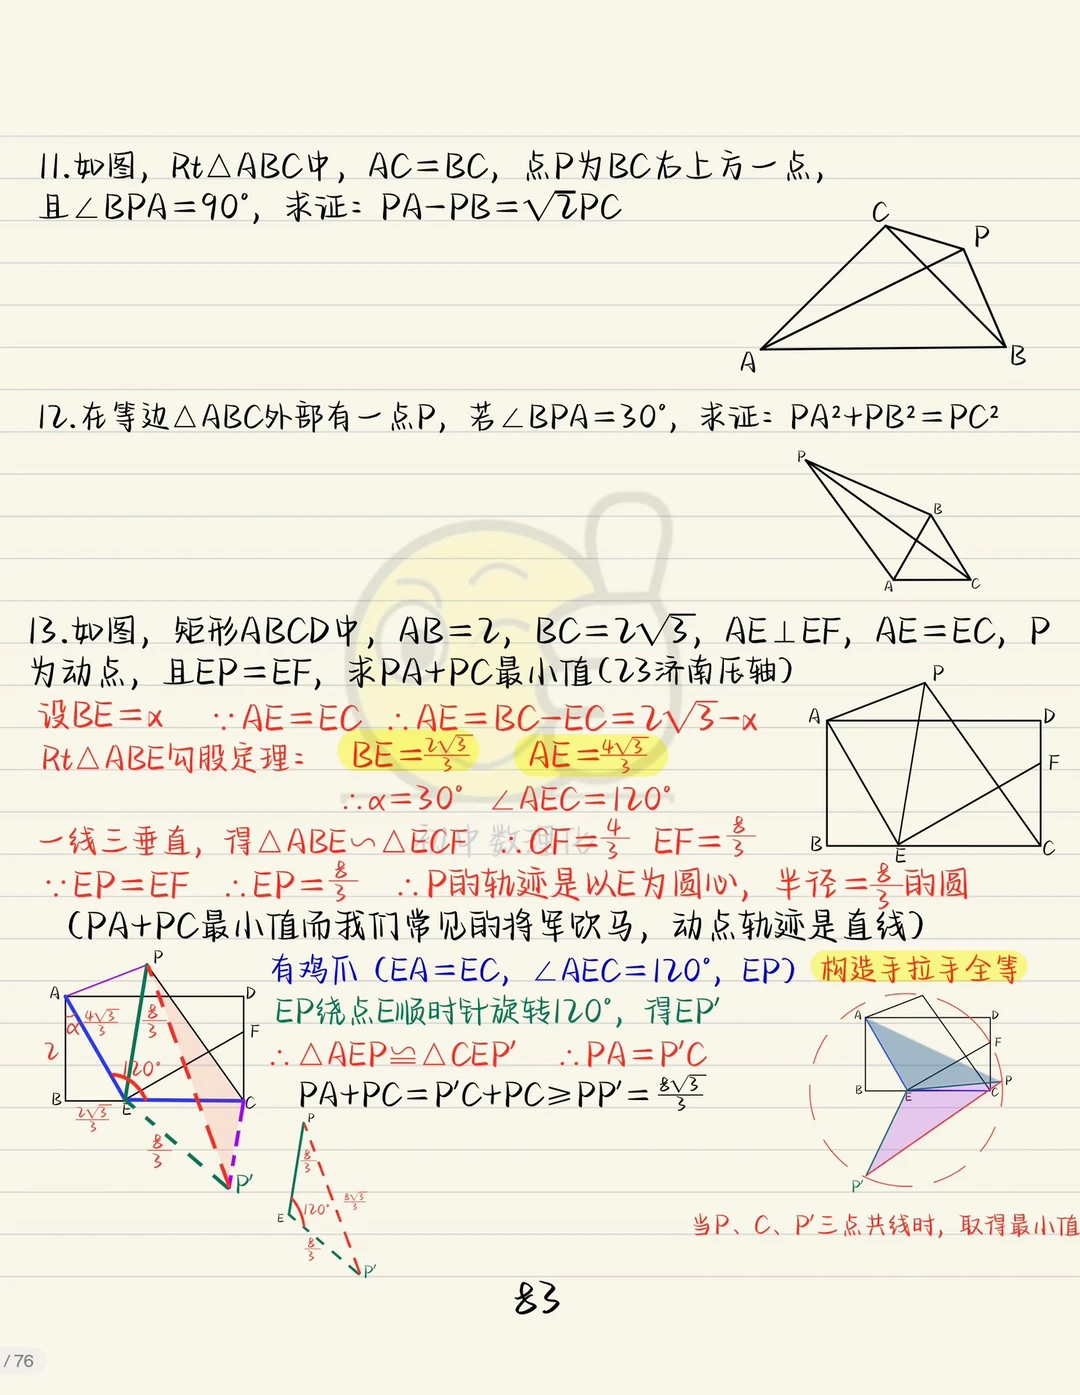 11.如图，Rt△ABC中，AC=BC，点P为BC右上方一点，
且∠BPA=90°，求证：PA-PB=√2PC
C
P
A
B
12.在等边△ABC外部有一点P，若∠BPA=30°，求证：PA²+PB²=PC²
P
B
A
C
13.如图，矩形ABCD中，AB=2，BC=2√3，AE⊥EF，AE=EC，P
为动点，且EP=EF，求PA+PC最小值（23济南压轴）
P
A
D
F
B
E
C
设BE=x ∵AE=EC ∴AE=BC-EC=2√3-x
Rt△ABE勾股定理： BE=2√3/3 AE=4√3/3
∴α=30° ∠AEC=120°
初中数理化
一线三垂直，得△ABE∽△ECF ∴CF=4/3 EF=8/3
∵EP=EF ∴EP=8/3 ∴P的轨迹是以E为圆心，半径=8/3的圆
（PA+PC最小值而我们常见的将军饮马，动点轨迹是直线）
有鸡爪（EA=EC，∠AEC=120°，EP）构造手拉手全等
EP绕点E顺时针旋转120°，得EP'
∴△AEP≌△CEP' ∴PA=P'C
PA+PC=P'C+PC≥PP'=8√3/3
P
A
D
α
4√3/3
8/3
F
2
120°
B
E
C
2√3/3
8/3
P'
P
8/3
120°
8√3/3
E
8/3
P'
A
D
F
P
B
E
C
P'
当P、C、P'三点共线时，取得最小值
83
/ 76